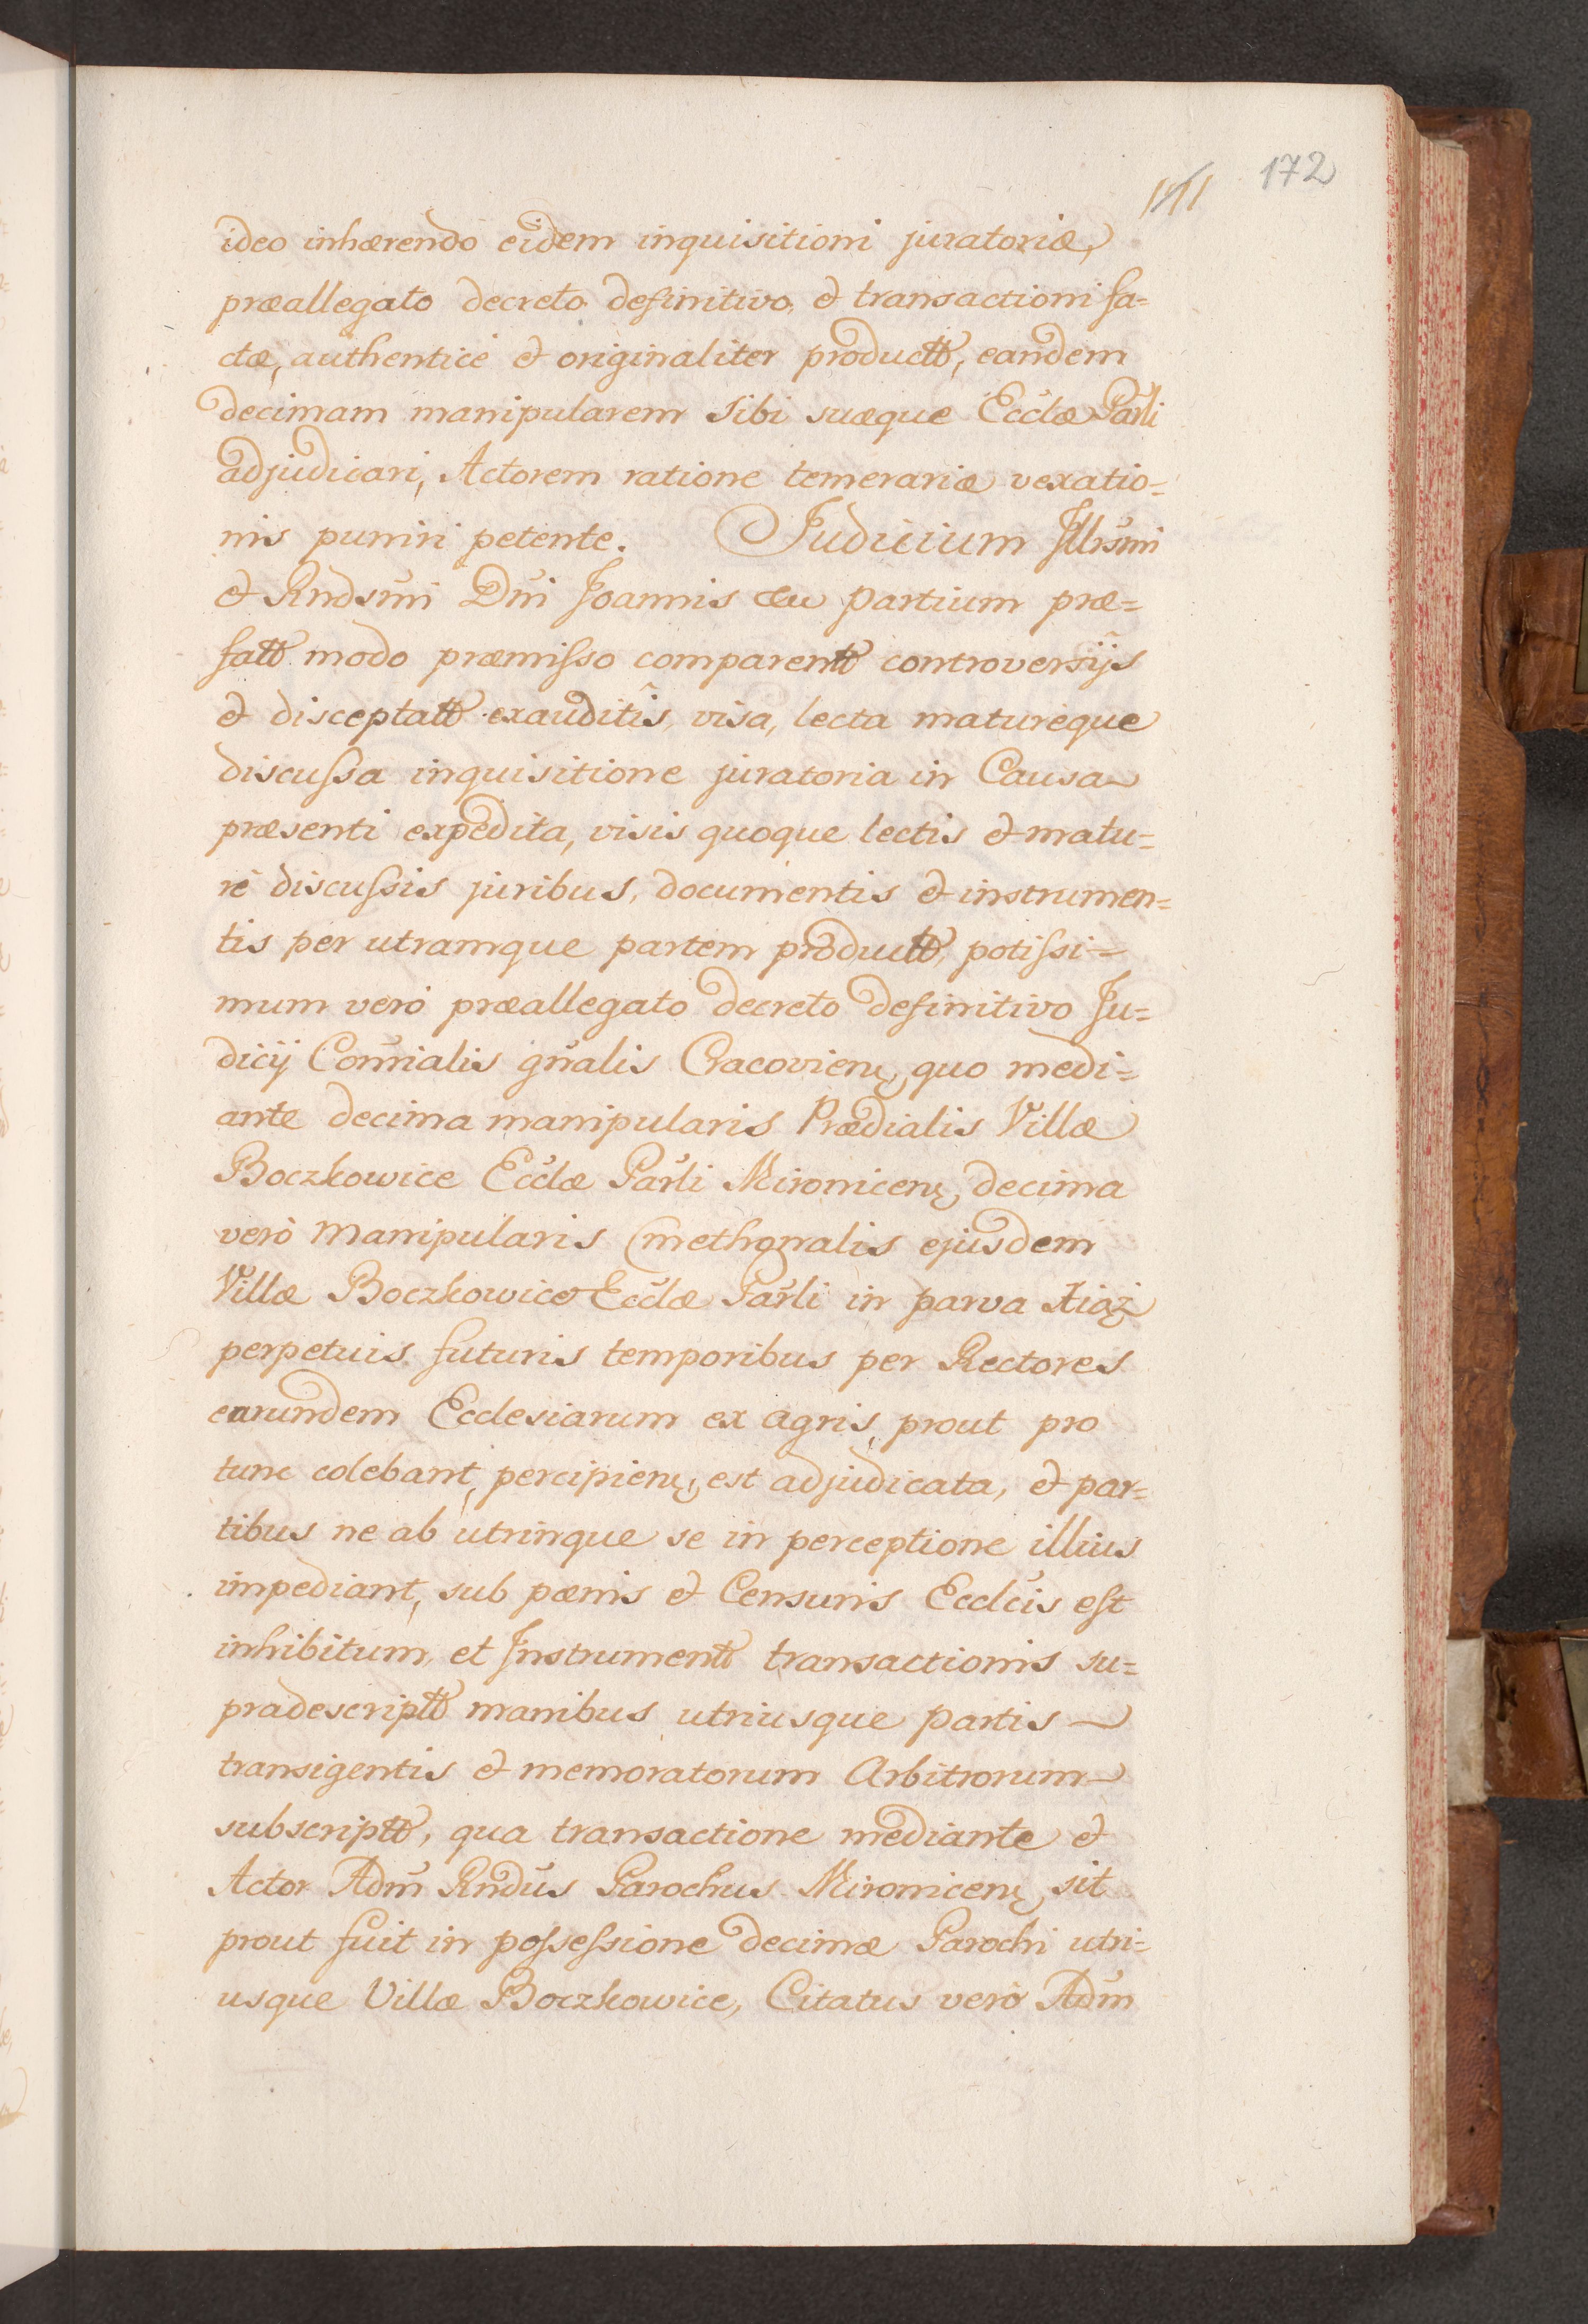 172
ideo inhærendo eidem inquisitioni juratoriæ,
præallegato decreto definitivo, & transactioni fa=
ctæ, authenticè & originaliter productt, eandem
decimam manipularem sibi suæque Eccłæ Parłi
adjudicari, Actorem ratione temerariæ vexatio=
nis puniri petente. Judicium Illrsmi
& Rndsmi Dni Joannis &c partium præ=
fatt modo præmisso comparentt controversijs
& disceptatt exauditis, visa, lecta maturèque
discussa inquisitione juratoria in Causa
præsenti expedita, visis quoque lectis & matu=
rè discussis juribus, documentis & instrumen=
tis per utramque partem productt, potissi=
mum verò præallegato decreto definitivo Ju=
dicij Connialis gnalis Cracovien, quo medi=
ante decima manipularis Prædialis Villæ
Boczkowice Eccłæ Parłi Mironicen, decima
verò manipularis Cmethonalis ejusdem
Villæ Boczkowice Eccłæ Parłi in parva Xiąz
perpetuis futuris temporibus per Rectores
earundem Ecclesiarum ex agris, prout pro
tunc colebant, percipien, est adjudicata, & par=
tibus ne ab utrinque se in perceptione illius
impediant, sub pœnis & Censuris Ecclcis est
inhibitum, et Instrumentt transactionis su=
pradescriptt manibus utriusque partis
transigentis & memoratorum Arbitrorum
subscriptt, qua transactione mediante &
Actor Adm Rndus Parochus Mironicen, sit
prout fuit in possessione decimæ Parochi utri=
usque Villæ Boczkowice, Citatus verò Adm